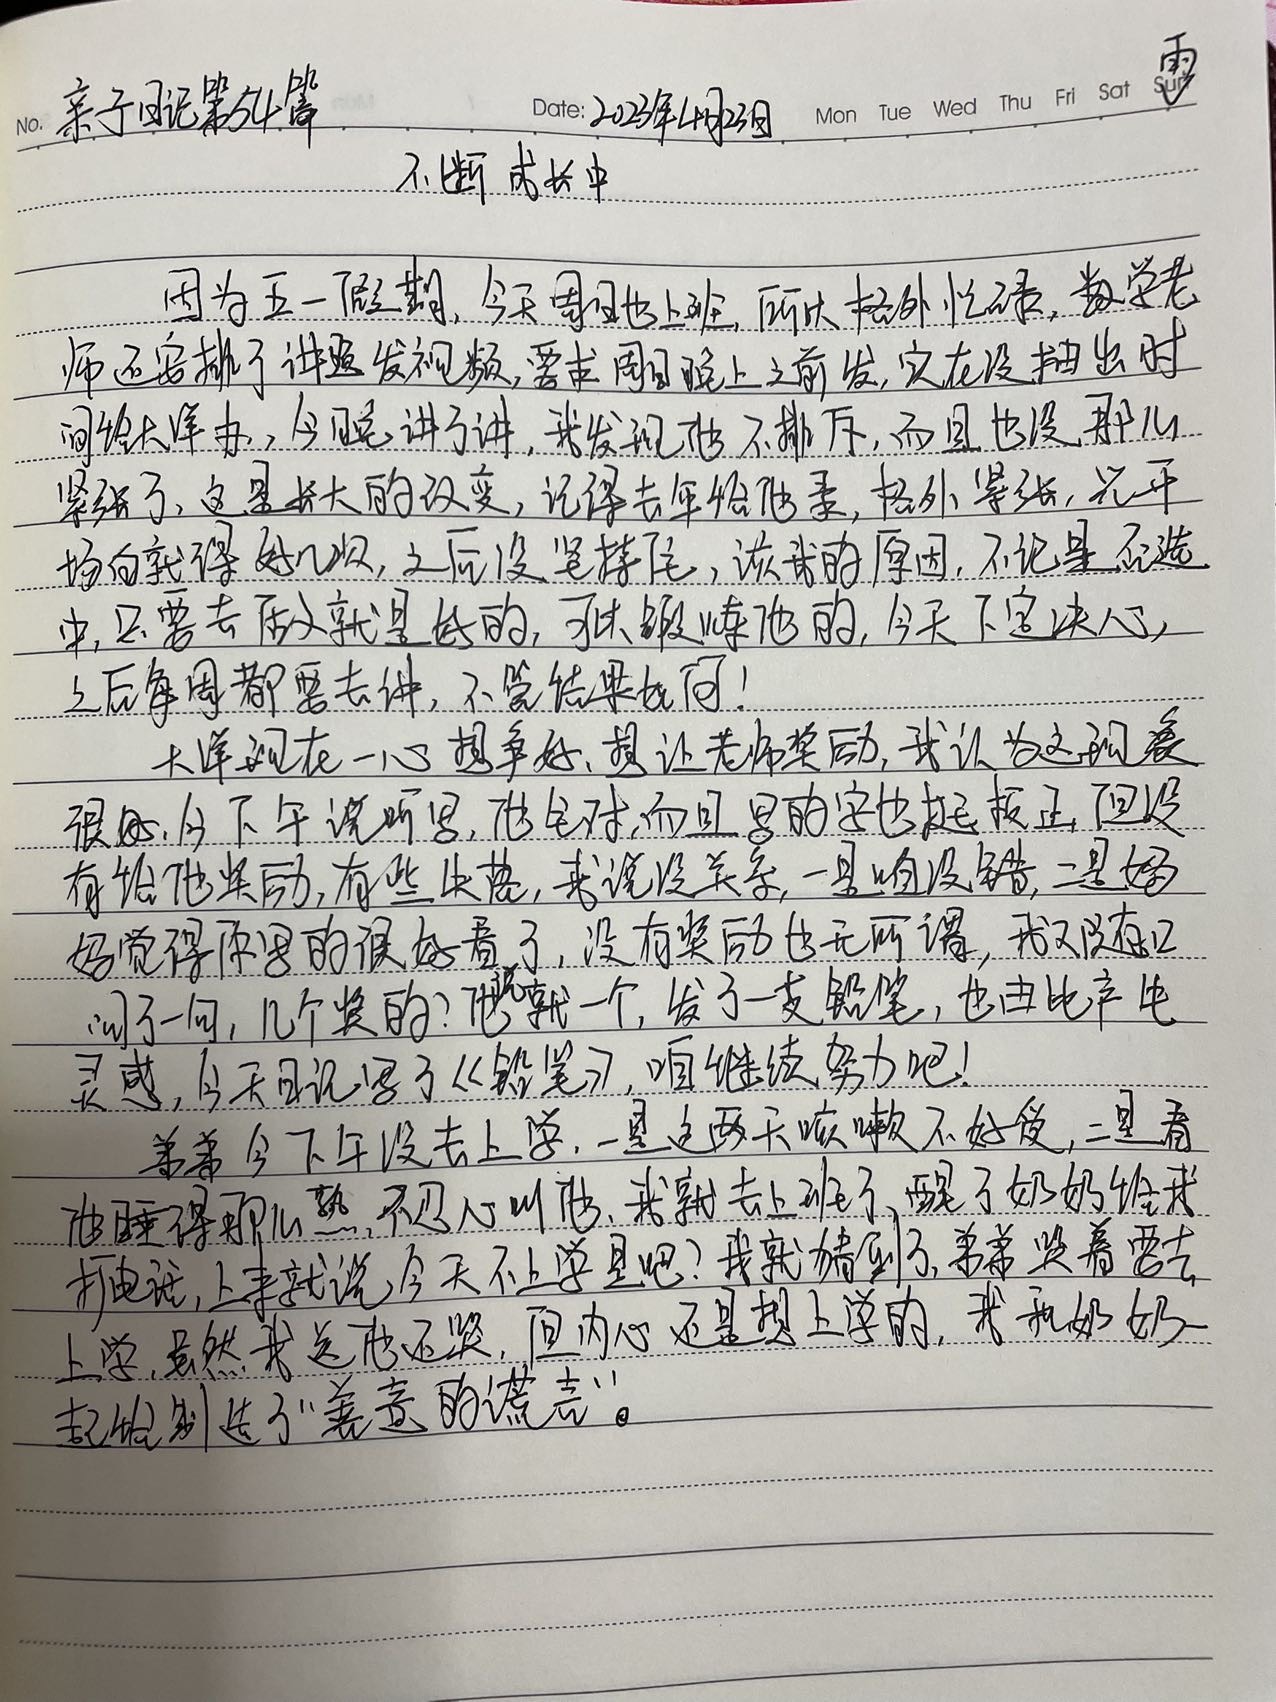 雨
No. 亲子日记第54篇 Date: 2023年4月23日 Mon Tue Wed Thu Fri Sat Sun
不断成长中
因为五一假期，今天周日也上班，所以格外忙碌，数学老
师还安排了讲题发视频，要求周日晚上之前发，实在没抽出时
间给大洋办，今晚讲了讲，我发现他不排斥，而且也没那么
紧张了，这是长大的改变，记得去年给他录，格外紧张，光开
场白就得好几次，之后没坚持住，该我的原因，不论是否选
中，只要去做就是好的，可以锻炼他的，今天下定决心，
之后每周都要去讲，不管结果如何！
大洋现在一心想争好，想让老师奖励，我认为这现象
很好，今下午说听写，他全对，而且写的字也挺板正，但没
有给他奖励，有些失落，我说没关系，一是咱没错，二是妈
妈觉得你写的很好看了，没有奖励也无所谓，我又随口
问了一句，几个奖的？他说就一个，发了一支铅笔，也由此产生
灵感，今天日记写了《铅笔》，咱继续努力吧！
弟弟今下午没去上学，一是这两天咳嗽不好受，二是看
他睡得那么熟，不忍心叫他，我就去上班了，醒了奶奶给我
打电话，上来就说今天不上学是吧？我就猜到了，弟弟哭着要去
上学，虽然我送他还哭，但内心还是想上学的，我和奶奶一
起给制造了“善意的谎言”。